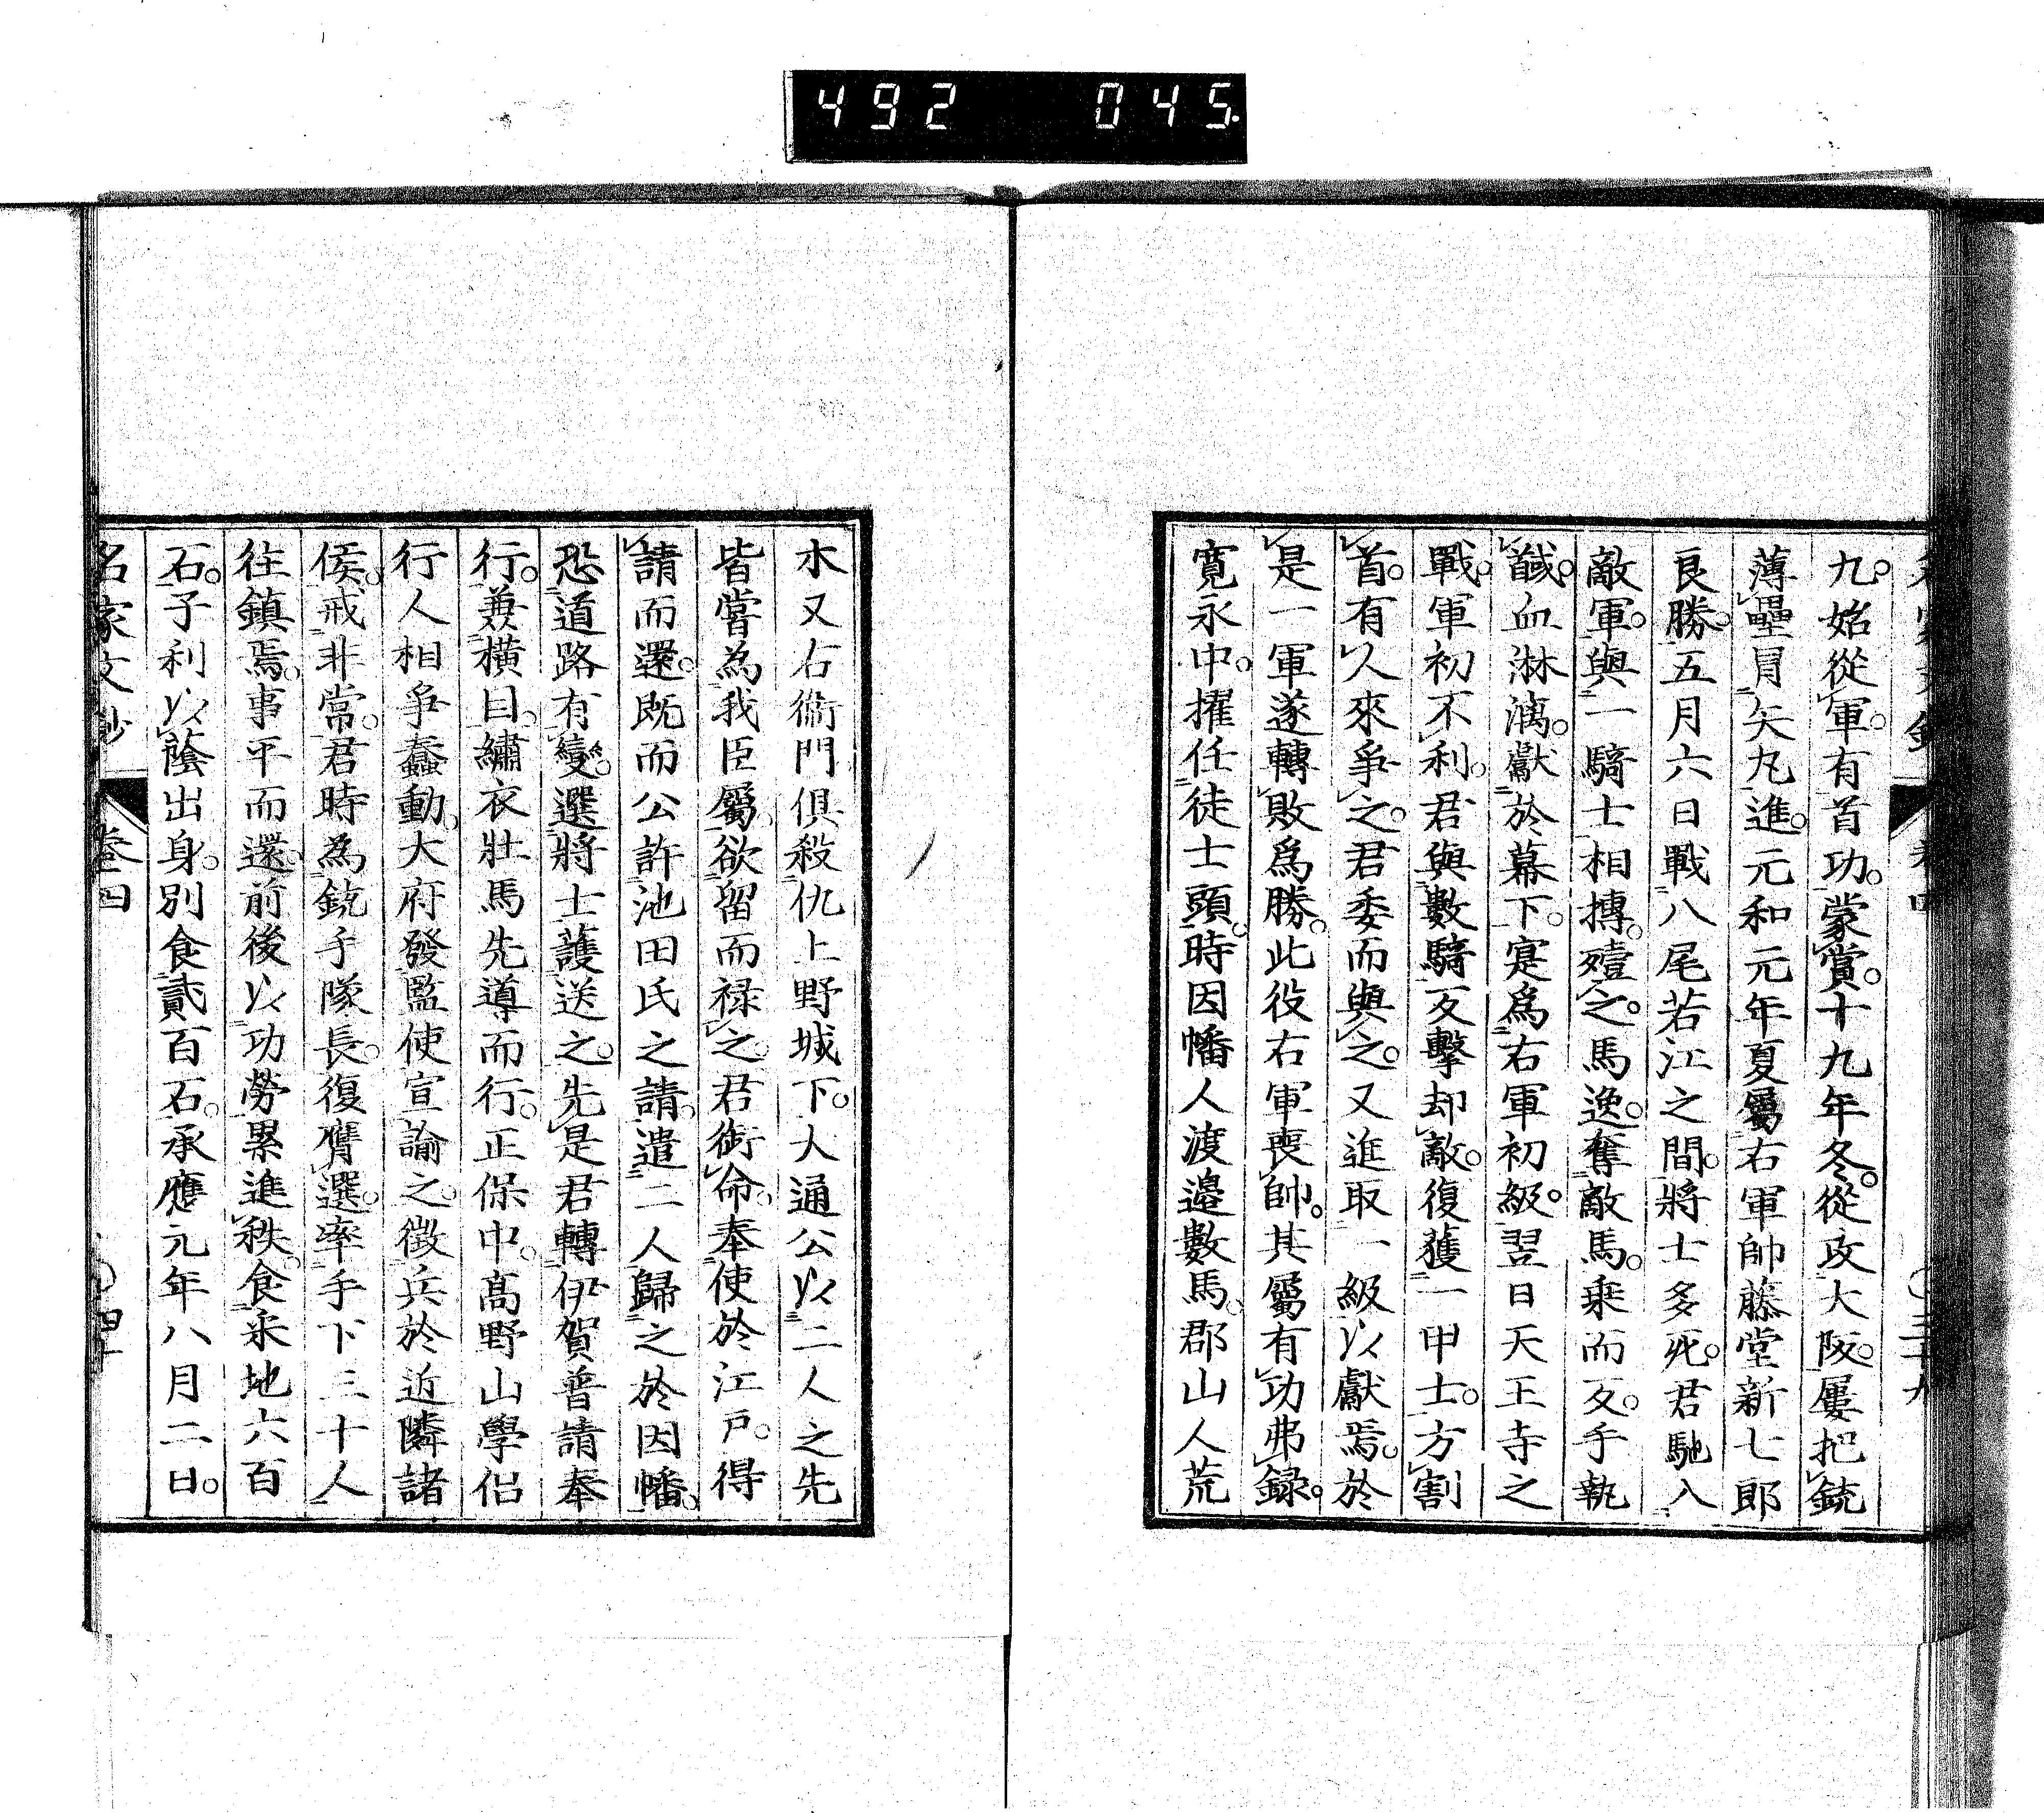 492 045.
九。始從軍。有首功。蒙賞。十九年冬。從攻大阪。屢把銃
薄壘冒矢丸進。元和元年夏屬右軍帥藤堂新七郎
良勝。五月六日戰八尾若江之間。將士多死。君馳入
敵軍。與一騎士相搏。殪之。馬逸。奪敵馬。乘而反。手執
馘。血淋漓。獻於幕下。寔爲右軍初級。翌日天王寺之
戰。軍初不利。君與數騎反擊却敵。復獲一甲士。方割
首。有人來爭之。君委而與之。又進取一級以獻焉。於
是一軍遂轉敗爲勝。此役右軍喪帥。其屬有功弗録。
寛永中。擢任徒士頭。時因幡人渡邉數馬。郡山人荒
木又右衞門俱殺仇上野城下。大通公以二人之先
皆嘗為我臣屬。欲留而禄之。君銜命。奉使於江戸。得
請而還。既而公許池田氏之請。遣二人歸之於因幡。
恐道路有變。選將士護送之。先是君轉伊賀普請奉
行。兼橫目。繡衣壯馬先導而行。正保中。高野山學侶
行人相爭蠢動。大府發監使宣諭之。徴兵於近隣諸
侯。戒非常。君時為銃手隊長。復膺選。率手下三十人
往鎮焉。事平而還。前後以功勞累進秩。食采地六百
石。子利以蔭出身。別食貳百石。承應元年八月二日。
名家文鈔 卷四 〇四十